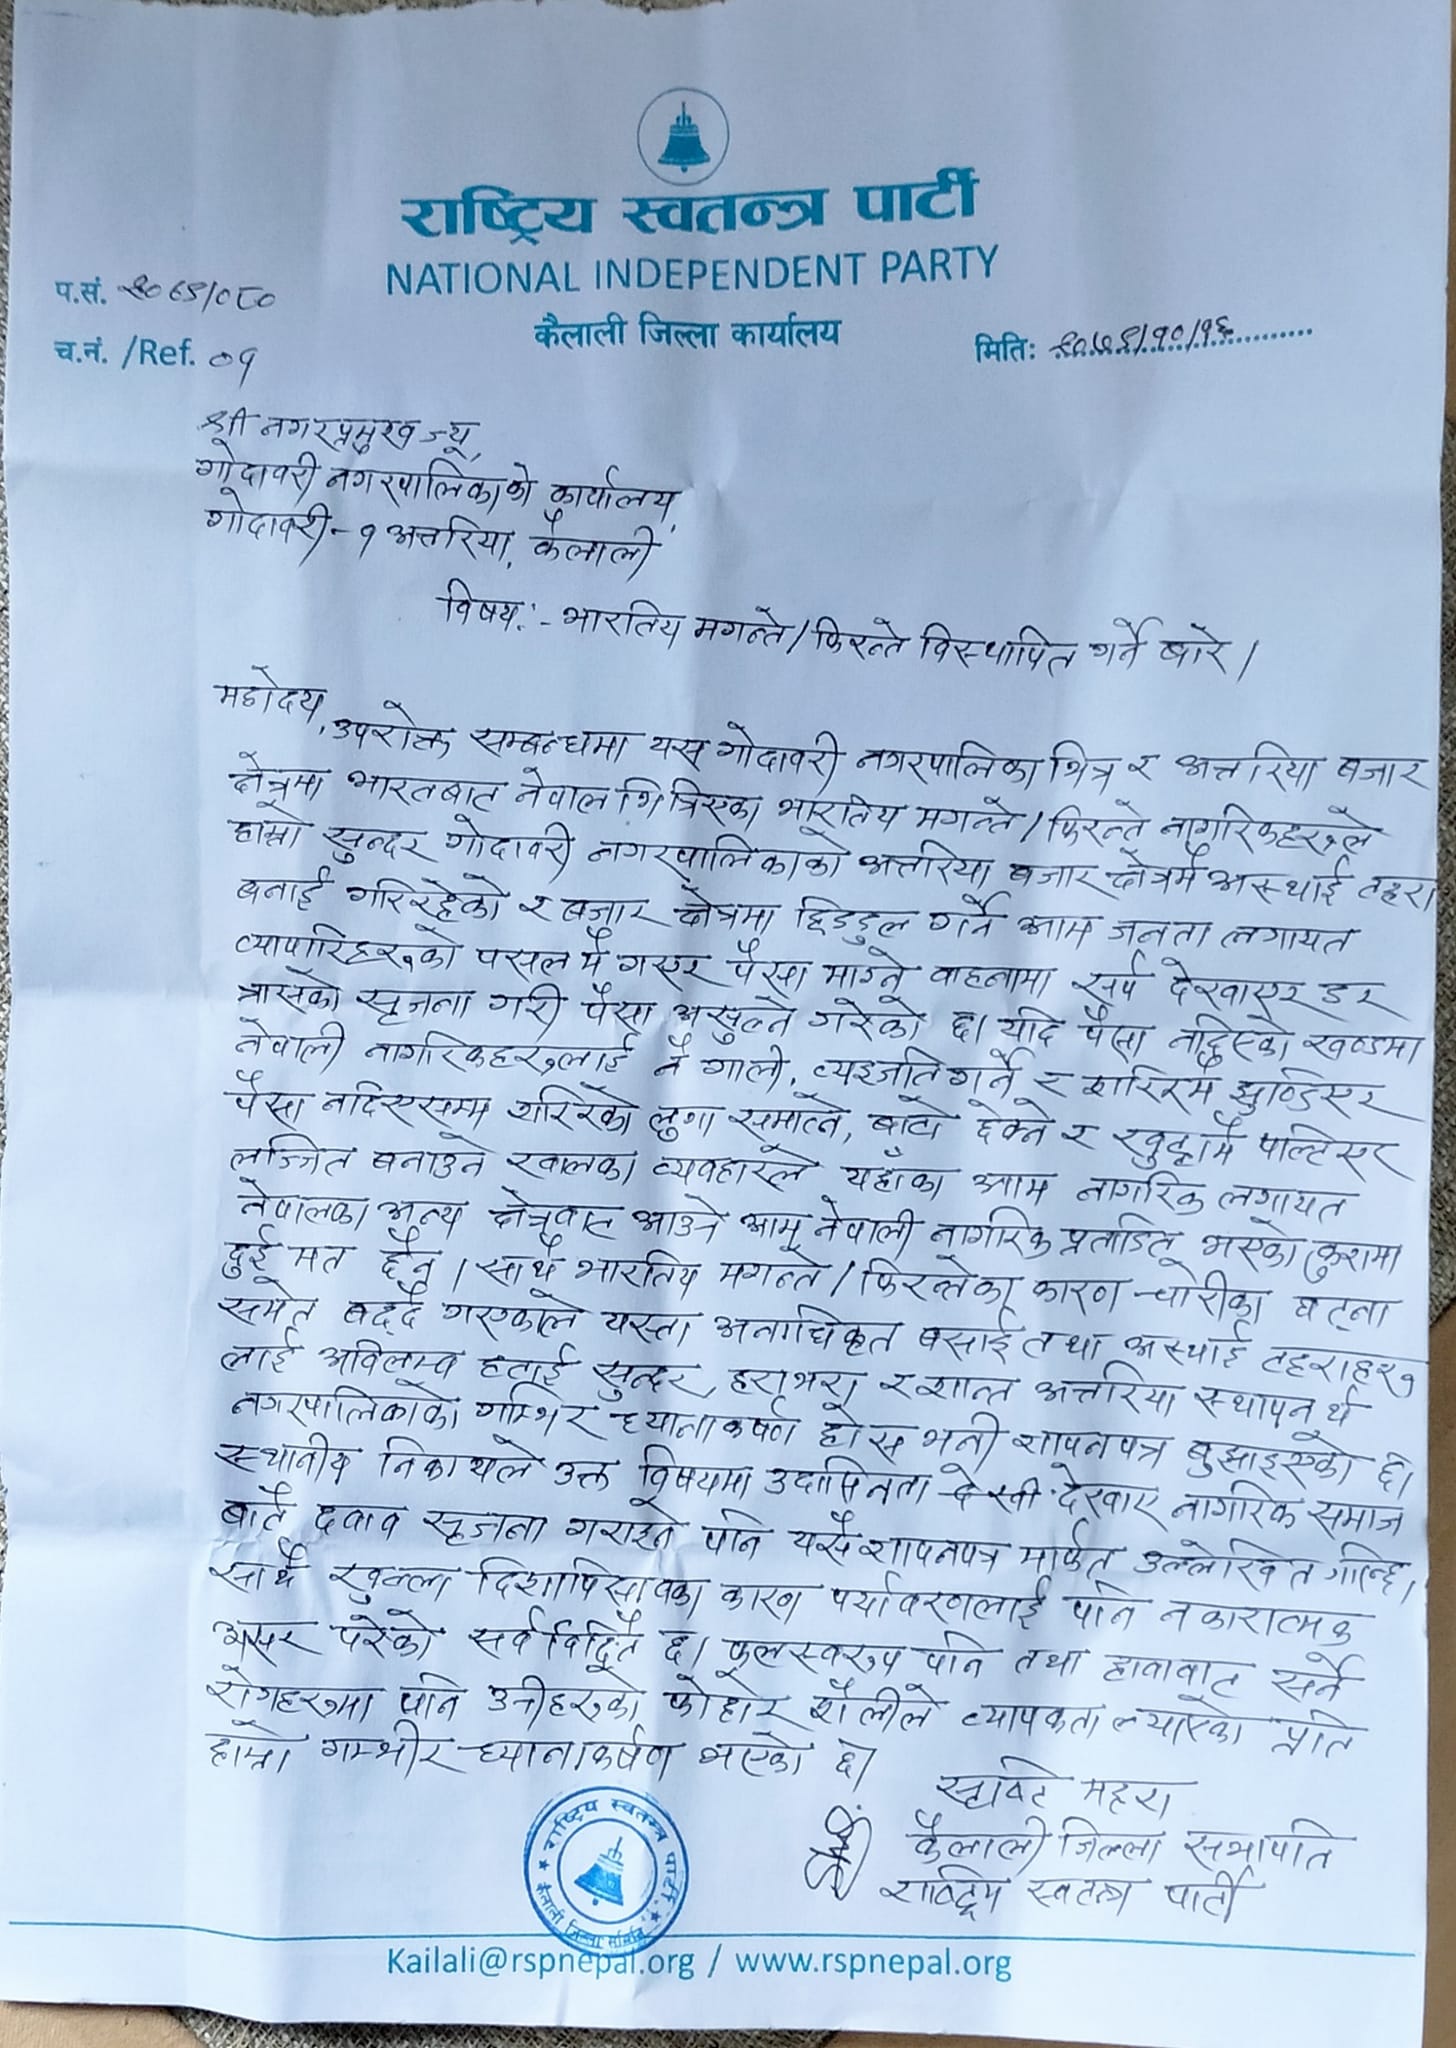 राष्ट्रिय स्वतन्त्र पार्टी
NATIONAL INDEPENDENT PARTY
कैलाली जिल्ला कार्यालय
प.सं. २०७९/०८०
च.नं. /Ref. ०१
मितिः २०७९/१०/१६
श्री नगरप्रमुख ज्यू,
गोदावरी नगरपालिकाको कार्यालय,
गोदावरी-१ अत्तरिया, कैलाली
विषय:- भारतिय मगन्ते/फिरन्ते विस्थापित गर्ने बारे।
महोदय,
उपरोक्त सम्बन्धमा यस गोदावरी नगरपालिका भित्र र अत्तरिया बजार
क्षेत्रमा भारतबाट नेपाल भित्रिएका भारतिय मगन्ते/फिरन्ते नागरिकहरुले
हाम्रो सुन्दर गोदावरी नगरपालिकाको अत्तरिया बजार क्षेत्रमै अस्थाई टहरा
बनाई गरिरहेको र बजार क्षेत्रमा हिडडुल गर्ने आम जनता लगायत
व्यापारिहरुको पसलमै गएर पैसा माग्ने वाहनामा सर्प देखाएर डर
त्रासको सृजना गरी पैसा असुल्ने गरेको छ। यदि पैसा नदिएको खण्डमा
नेपाली नागरिकहरुलाई नै गाली, व्यइजति गर्ने र शरिरमै झुण्डिएर
पैसा नदिएसम्म शरिरको लुगा समात्ने, बाटो छेक्ने र खुट्टामै पल्टिएर
लज्जित बनाउने खालका व्यवहारले यहाँका आम नागरिक लगायत
नेपालका अन्य क्षेत्रबाट आउने आम नेपाली नागरिक प्रताडित भएको कुरामा
दुई मत छैन। साथै भारतिय मगन्ते/फिरन्तेका कारण चोरीका घटना
समेत बढ्दै गएकाले यस्ता अनाधिकृत बसाई तथा अस्थाई टहराहरु
लाई अविलम्ब हटाई सुन्दर, हराभरा र शान्त अत्तरिया स्थापनार्थ
नगरपालिकाको गम्भिर ध्यानाकर्षण होस भनी ज्ञापनपत्र बुझाइएको छ।
स्थानीय निकायले उक्त विषयमा उदासिनता देखाए नागरिक समाज
बाटै दवाव सृजना गराइने पनि यसै ज्ञापनपत्र मार्फत उल्लेखित गरिन्छ।
साथै खुल्ला दिशापिसावका कारण पर्यावरणलाई पनि नकारात्मक
असर परेको सर्वविदितै छ। फलस्वरुप पानि तथा हावाबाट सर्ने
रोगहरुमा पनि उनीहरुको फोहोर शैलीले व्यापकता ल्याएको प्रति
हाम्रो गम्भीर ध्यानाकर्षण भएको छ।
सृष्टि महरा
कैलाली जिल्ला सभापति
राष्ट्रिय स्वतन्त्र पार्टी
राष्ट्रिय स्वतन्त्र पार्टी
कैलाली जिल्ला
Kailali@rspnepal.org / www.rspnepal.org